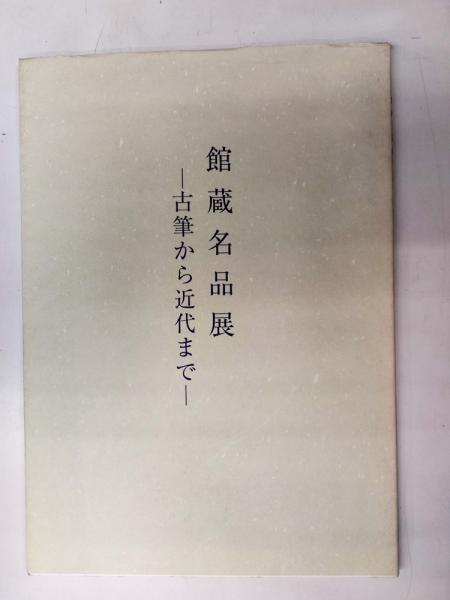 館蔵名品展
―古筆から近代まで―